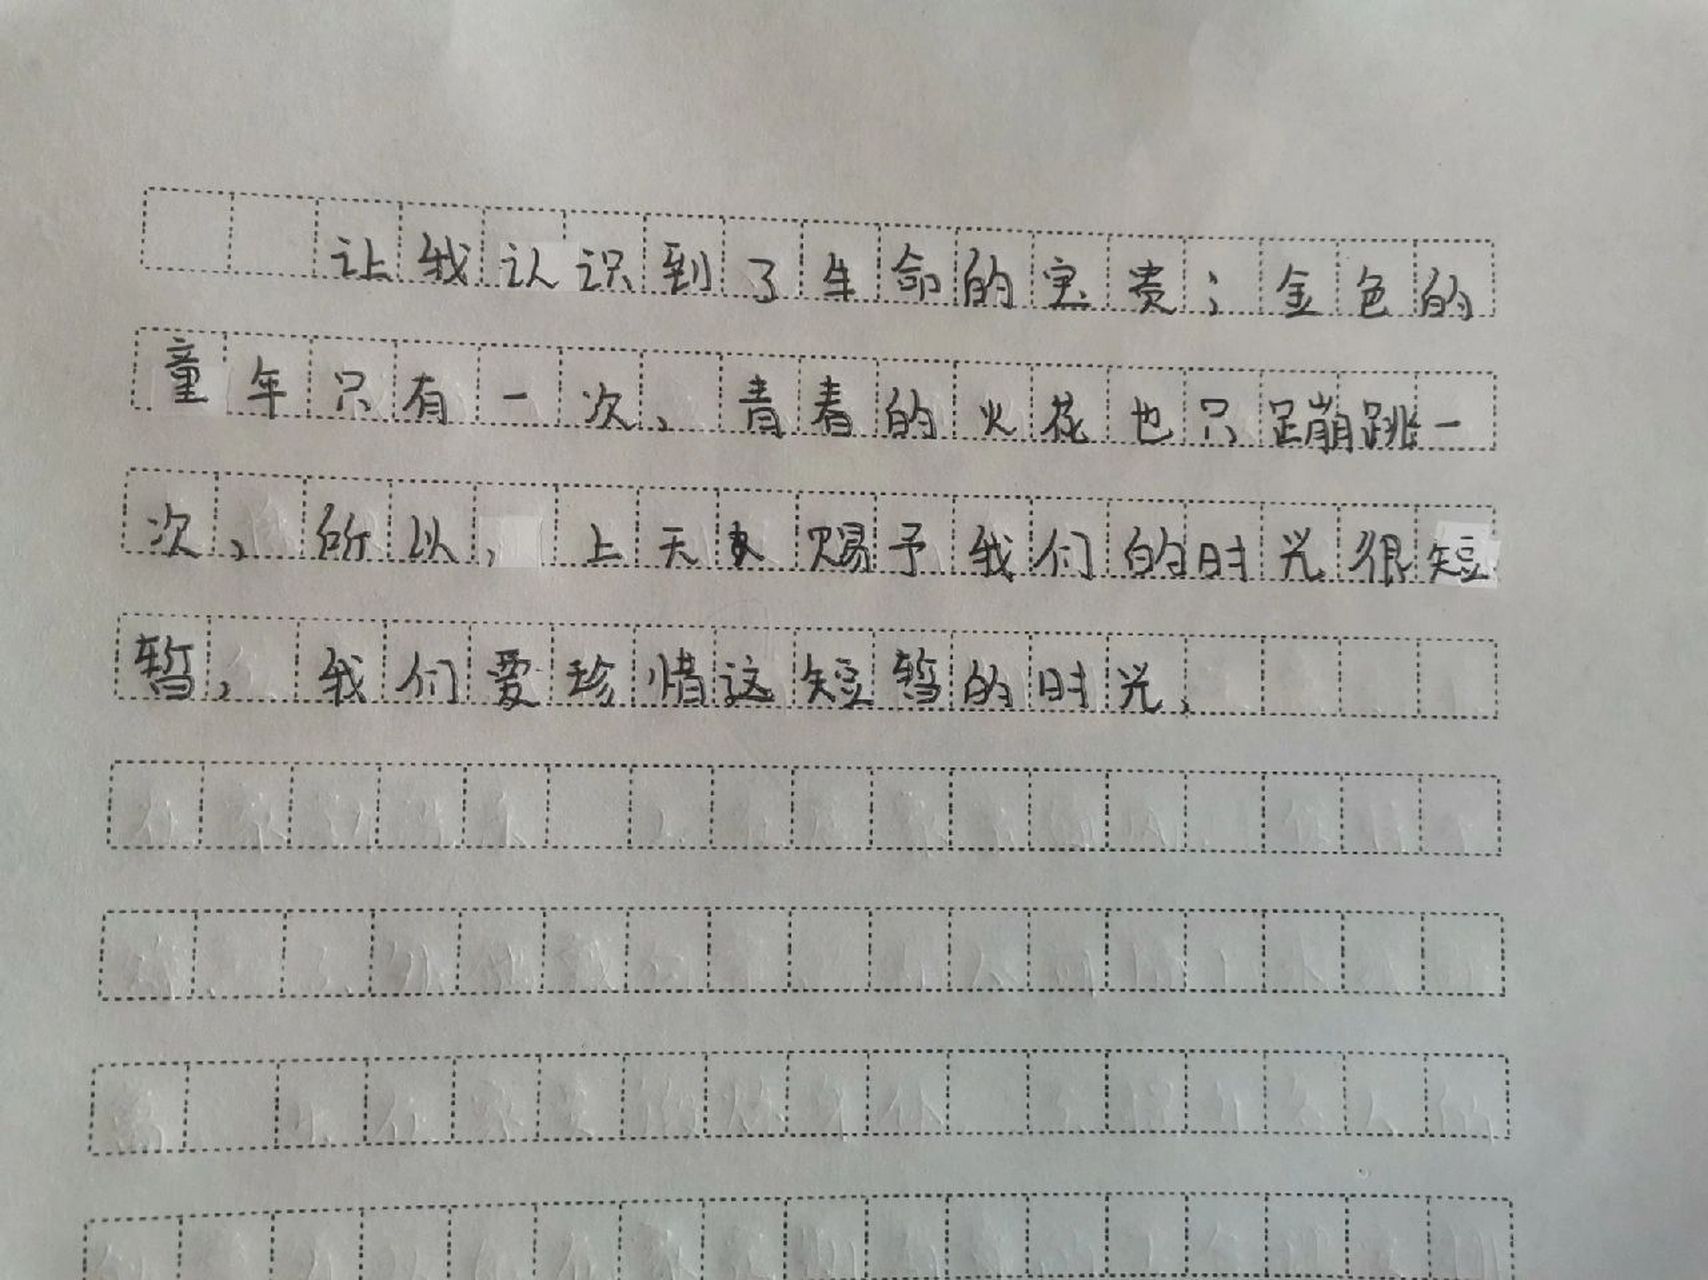 让我认识到了生命的宝贵；金色的
童年只有一次、青春的火花也只蹦跳一
次、所以，上天赐予我们的时光很短
暂，我们要珍惜这短暂的时光、